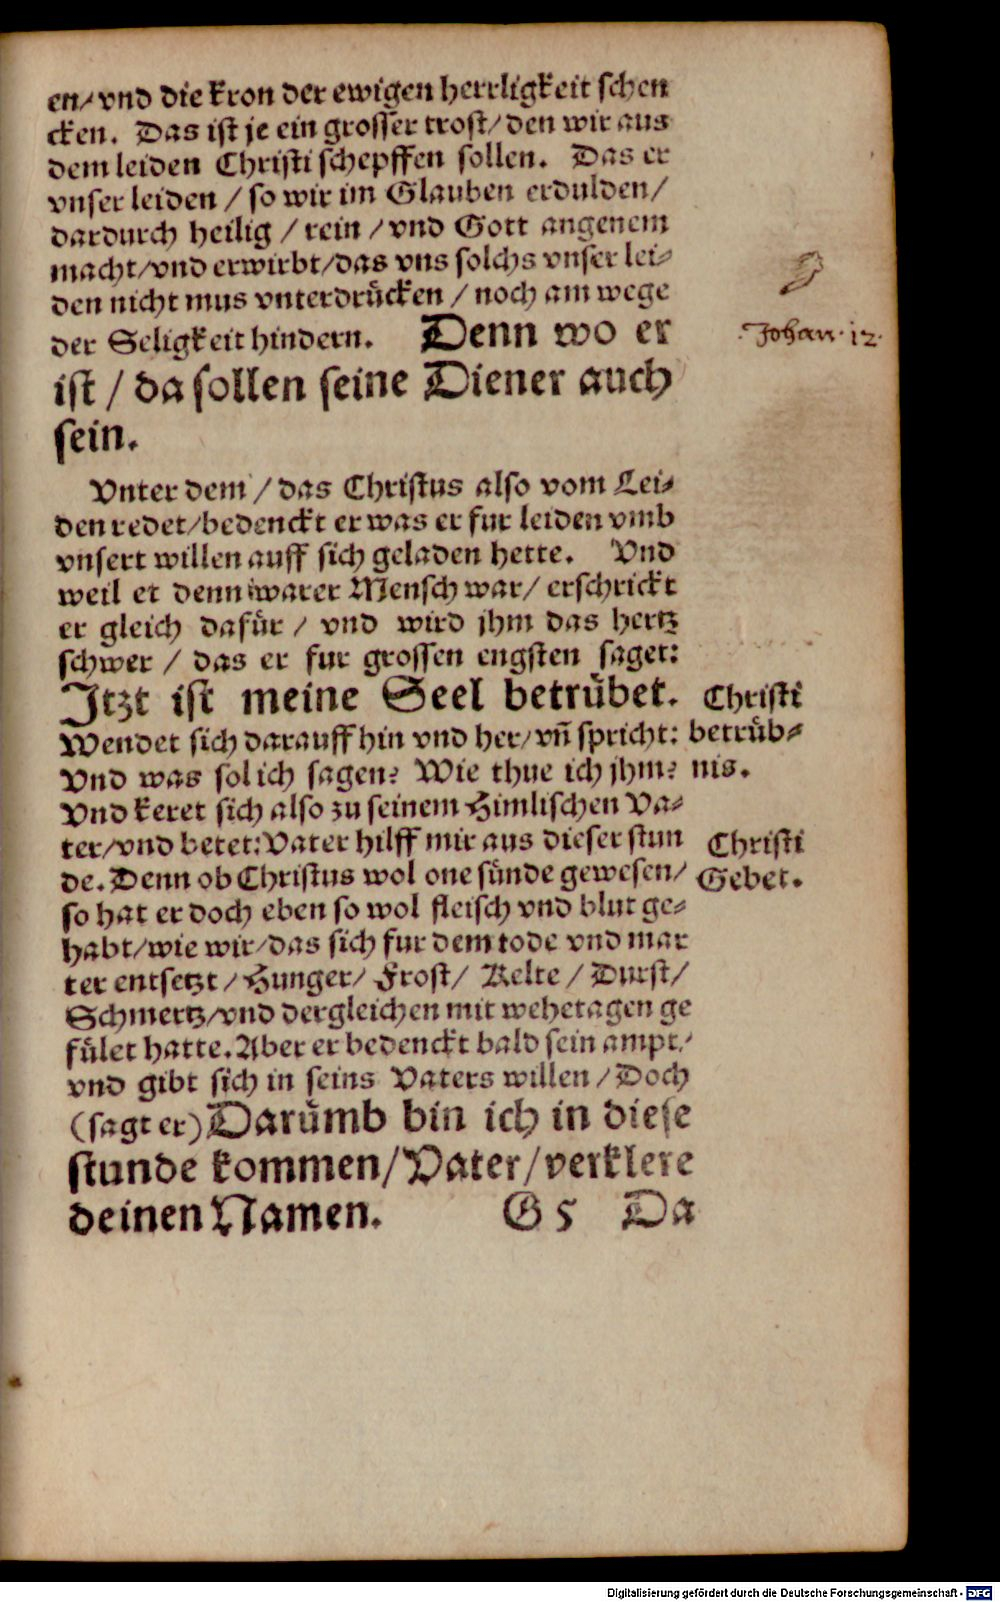 en/ vnd die kron der ewigen herrligkeit schen
cken. Das ist je ein grosser trost/ den wir aus
dem leiden Christi schepffen sollen. Das er
vnser leiden / so wir im Glauben erdulden/
dardurch heilig / rein / vnd Gott angenem
macht/ vnd erwirbt/ das vns solchs vnser lei-
den nicht mus vnterdrücken / noch am wege
der Seligkeit hindern. Denn wo er
Johan 12.
ist / da sollen seine Diener auch
sein.
Vnter dem / das Christus also vom Lei-
den redet/ bedenckt er was er fur leiden vmb
vnsert willen auff sich geladen hette. Vnd
weil et denn warer Mensch war/ erschrickt
er gleich dafür / vnd wird jhm das hertz
schwer / das er fur grossen engsten saget:
Jtzt ist meine Seel betrübet.
Wendet sich darauff hin vnd her/ vn̄ spricht:
Vnd was sol ich sagen? Wie thue ich jhm?
Christi
betrüb-
nis.
Vnd keret sich also zu seinem Himlischen Va-
ter/ vnd betet: Vater hilff mir aus dieser stun
de. Denn ob Christus wol one sünde gewesen/
Christi
Gebet.
so hat er doch eben so wol fleisch vnd blut ge-
habt/ wie wir/ das sich fur dem tode vnd mar
ter entsetzt / Hunger/ Frost/ Kelte / Durst/
Schmertz/ vnd dergleichen mit wehetagen ge
fület hatte. Aber er bedenckt bald sein ampt/
vnd gibt sich in seins Vaters willen / Doch
(sagt er) Darümb bin ich in diese
stunde kommen/ Vater/ verklere
deinen Namen.
G 5 Da
Digitalisierung gefördert durch die Deutsche Forschungsgemeinschaft - DFG